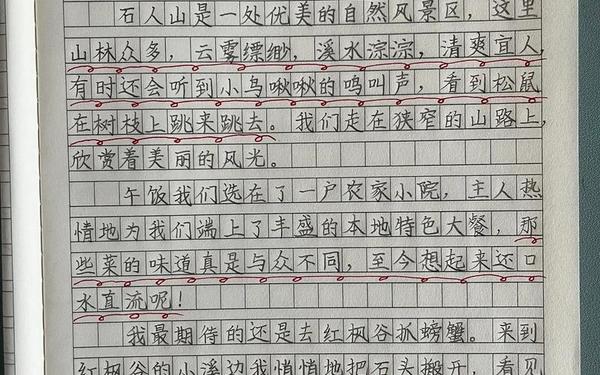 石人山是一处优美的自然风景区，这里
山林众多，云雾缥缈，溪水淙淙，清爽宜人，
有时还会听到小鸟啾啾的鸣叫声，看到松鼠
在树枝上跳来跳去。我们走在狭窄的山路上，
欣赏着美丽的风光。
午饭我们选在了一户农家小院，主人热
情地为我们端上了丰盛的本地特色大餐，那
些菜的味道真是与众不同，至今想起来还口
水直流呢！
我最期待的还是去红枫谷抓螃蟹。来到
红枫谷的小溪边我悄悄地把石头搬开，看见